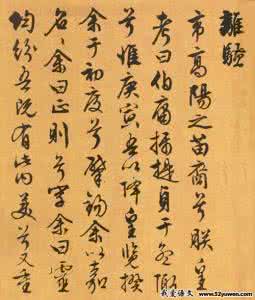 離騷
帝高陽之苗裔兮朕皇
考曰伯庸攝提貞于孟陬
兮惟庚寅吾以降皇覽揆
余于初度兮肇錫余以嘉
名々余曰正則兮字余曰靈
均紛吾既有此內美兮又重
我爱语文
www.52yuwen.com